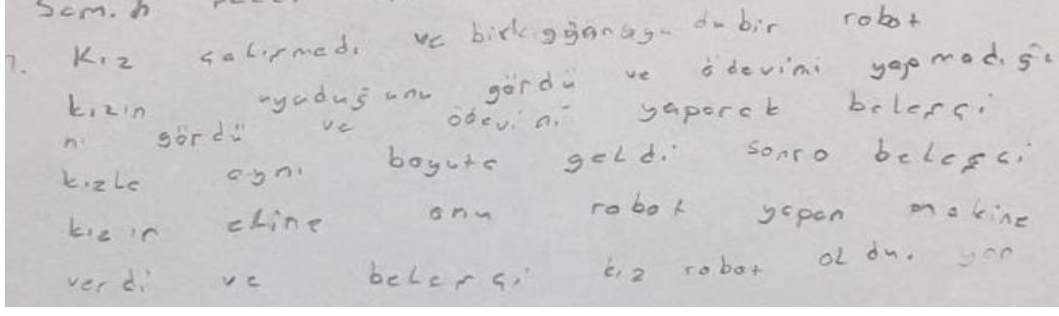 7. Kız çalışmadı ve bir robot
kızın uyuduğunu gördü ve ödevini yapmadığı
nı gördü ve ödevini yaparak beleşçi
kızla aynı boyuta geldi. sonra beleşçi
kızın eline onu robot yapan makine
verdi ve beleşçi kız robot oldu. yan